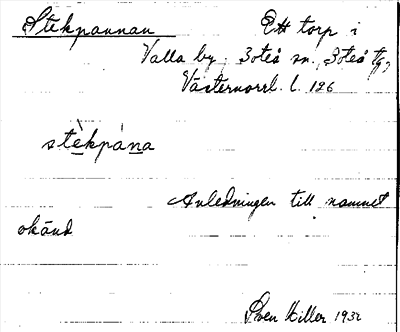 Stekpannan Ett torp i
Valla by, Boteå sn, Boteå tg,
Västernorrl. l. 126
stèkpána
Anledningen till namnet
okänd
Sven Hiller 1932